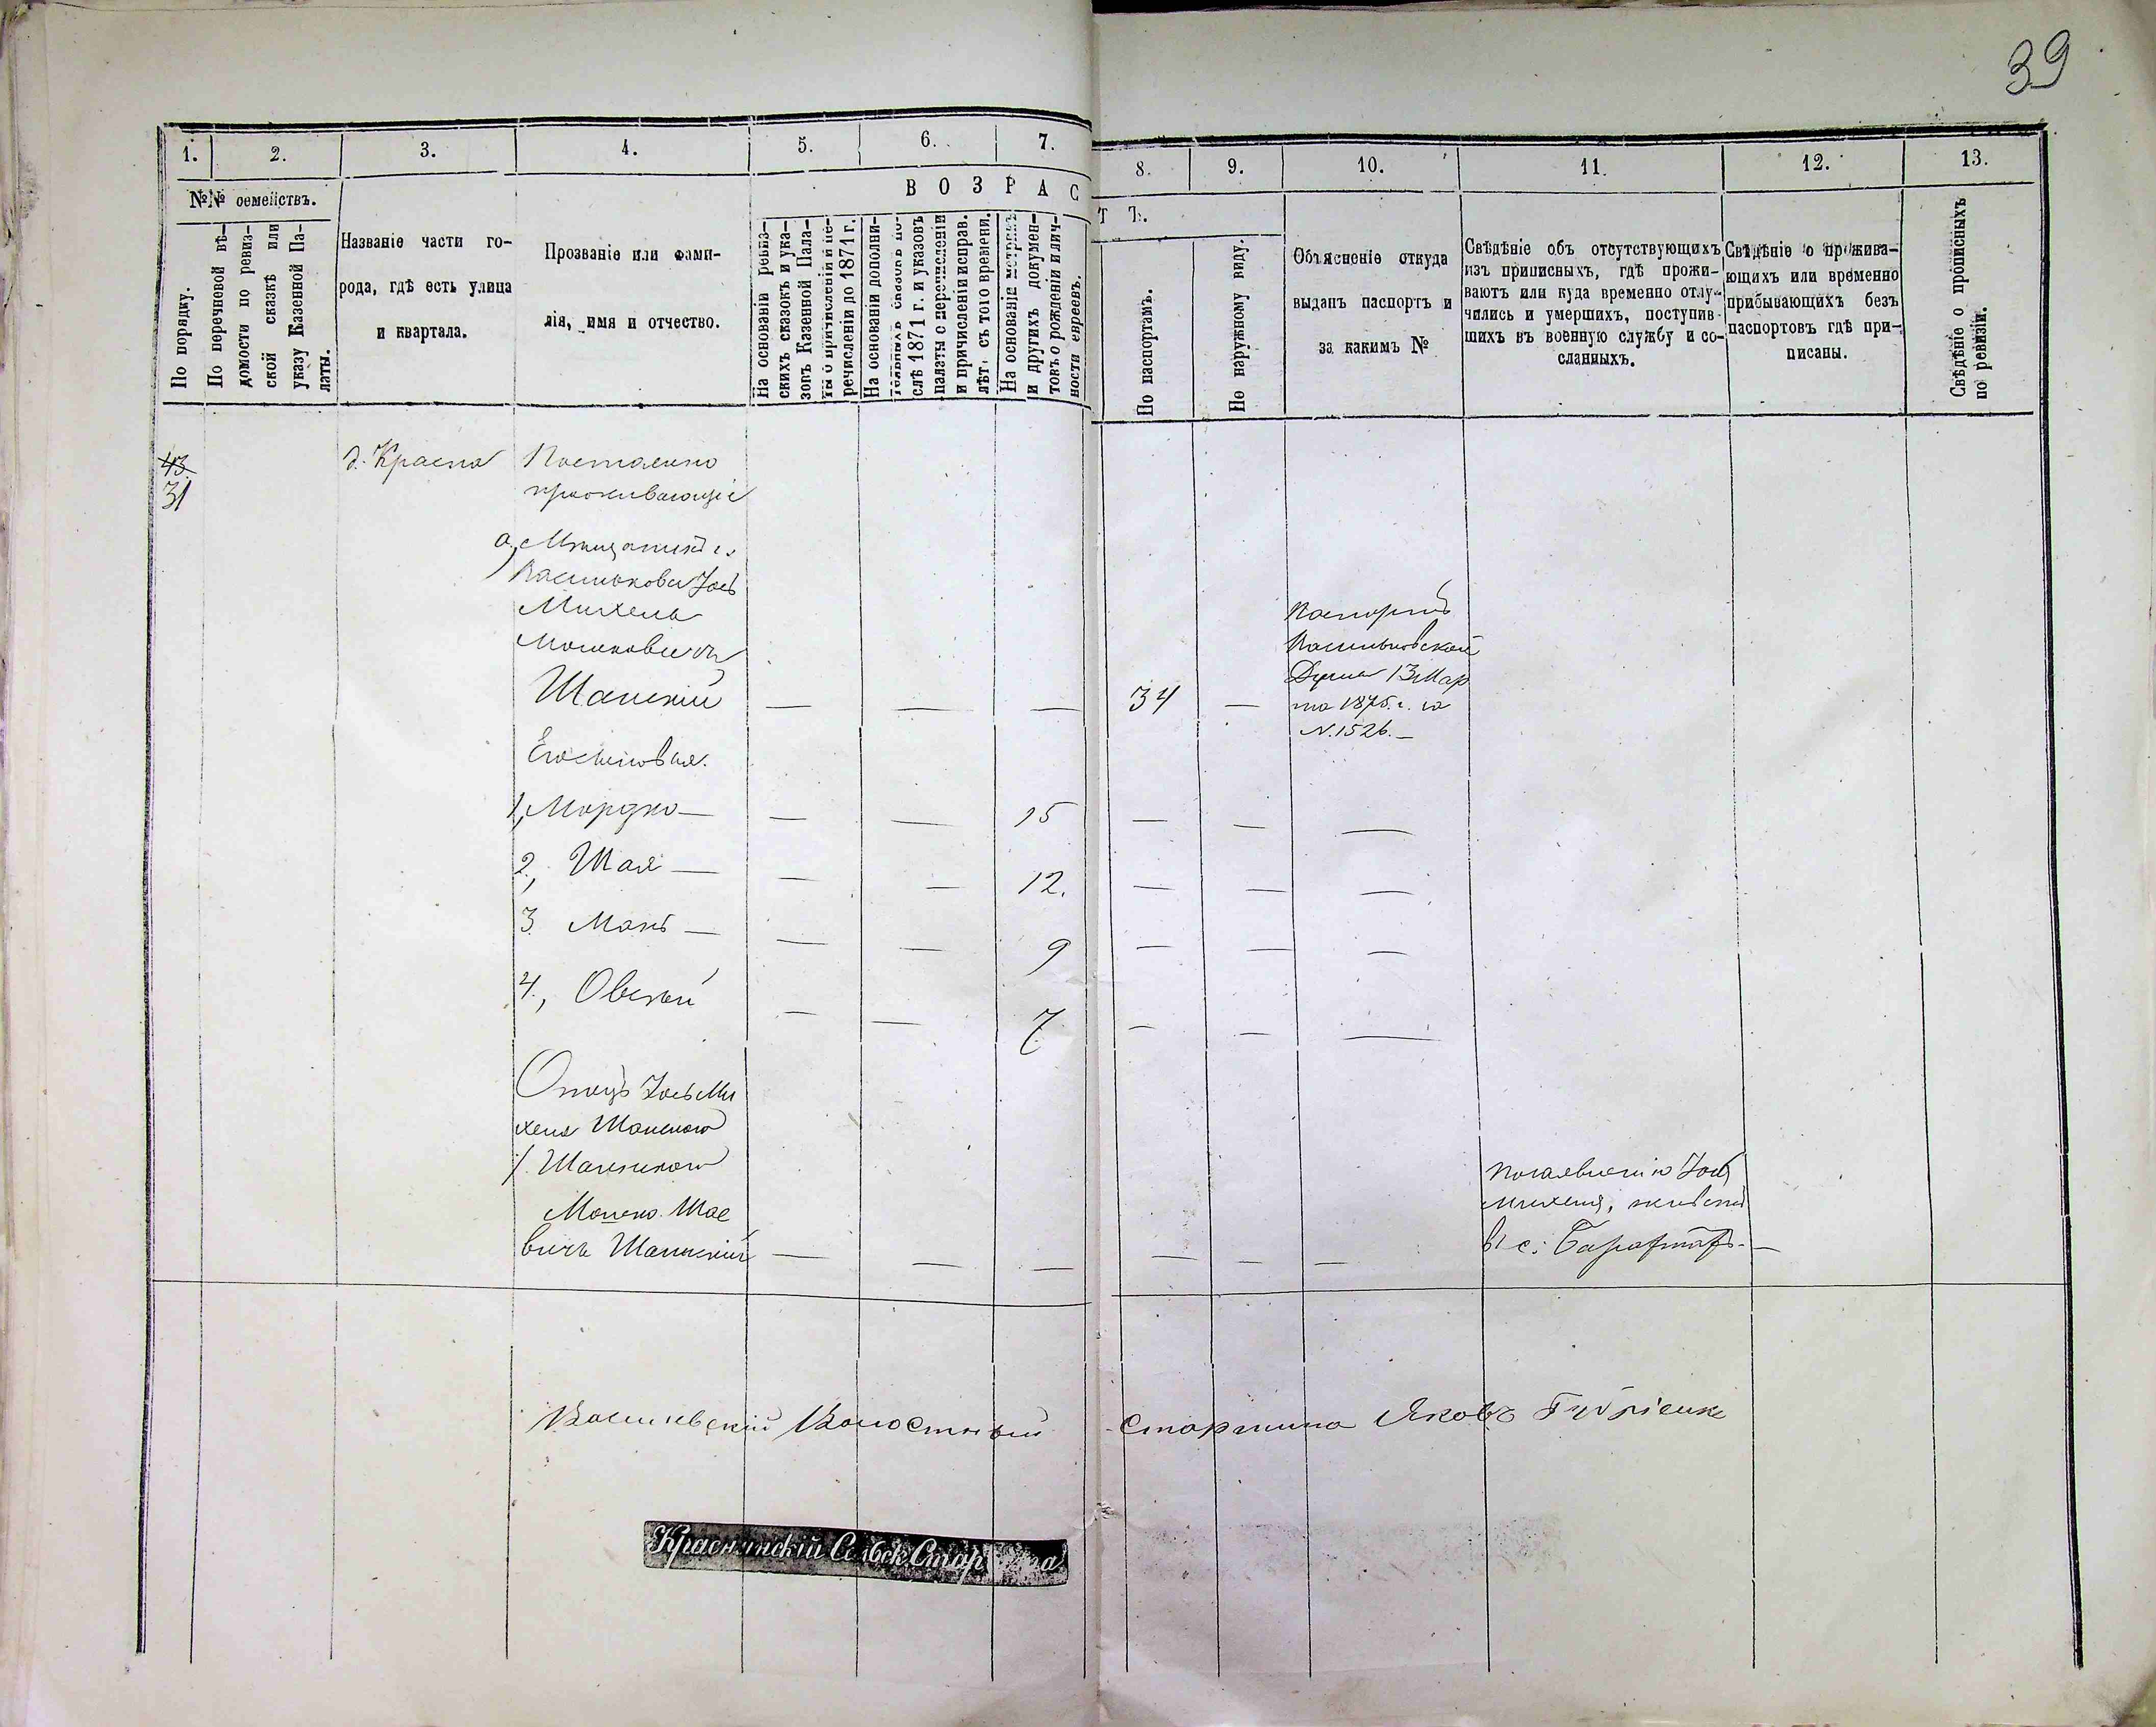 39
1.
2.
3.
4.
5.
6.
7.
8.
9.
10.
11.
12.
13.
№№ семействъ.
По порядку.
По перечневой вѣ-
домости по ревиз-
ской сказкѣ или
указу Казенной Па-
латы.
Названіе части го-
рода, гдѣ есть улица
и квартала.
Прозваніе или фами-
лія, имя и отчество.
ВОЗРАС
Т Ъ.
На основаніи ревиз-
скихъ сказокъ и ука-
зовъ Казенной Пала-
ты о причисленіи и пе-
речисленіи до 1871 г.
На основаніи дополни-
тельныхъ сказокъ по-
слѣ 1871 г. и указовъ
палаты с перечисленіи
и причисленіи исправ.
лѣт. съ того времени.
На основаніи метрикъ
и другихъ докумен-
товъ о рожденіи и лич-
ности евреевъ.
По паспортамъ.
По наружному виду.
Объясненіе откуда
выданъ паспортъ и
за какимъ №
Свѣдѣніе объ отсутствующихъ
изъ приписныхъ, гдѣ прожи-
ваютъ или куда временно отлу-
чились и умершихъ, поступив-
шихъ въ военную службу и со-
сланныхъ.
Свѣдѣніе о прожива-
ющихъ или временно
прибывающихъ безъ
паспортовъ гдѣ при-
писаны.
Свѣдѣніе о прописныхъ
по ревизіи.
43
31
д. Красна
Постоянно
проживающіе
а, Мѣщанинъ г.
Василькова Іось
Михель
Мошковичъ
Шанскій — — — 34 —
Паспортъ
Васильковской
Думы 13 Мар
та 1875. г. за
N. 1526. —
Его сыновья.
1, Мордко — — — 15 — — —
2, Шая — — — 12. — — —
3 Манъ — — — 9 — — —
4, Овсей — — 7 — — —
Отецъ Іось Ми
хеля Шанского
1. Шанского
Мошко Шае
вичъ Шанскій — — — — — —
По заявленію Іось
Михеля,
в с.
Волостный Старшина Яковъ
Краснянскій Сельск Стар а